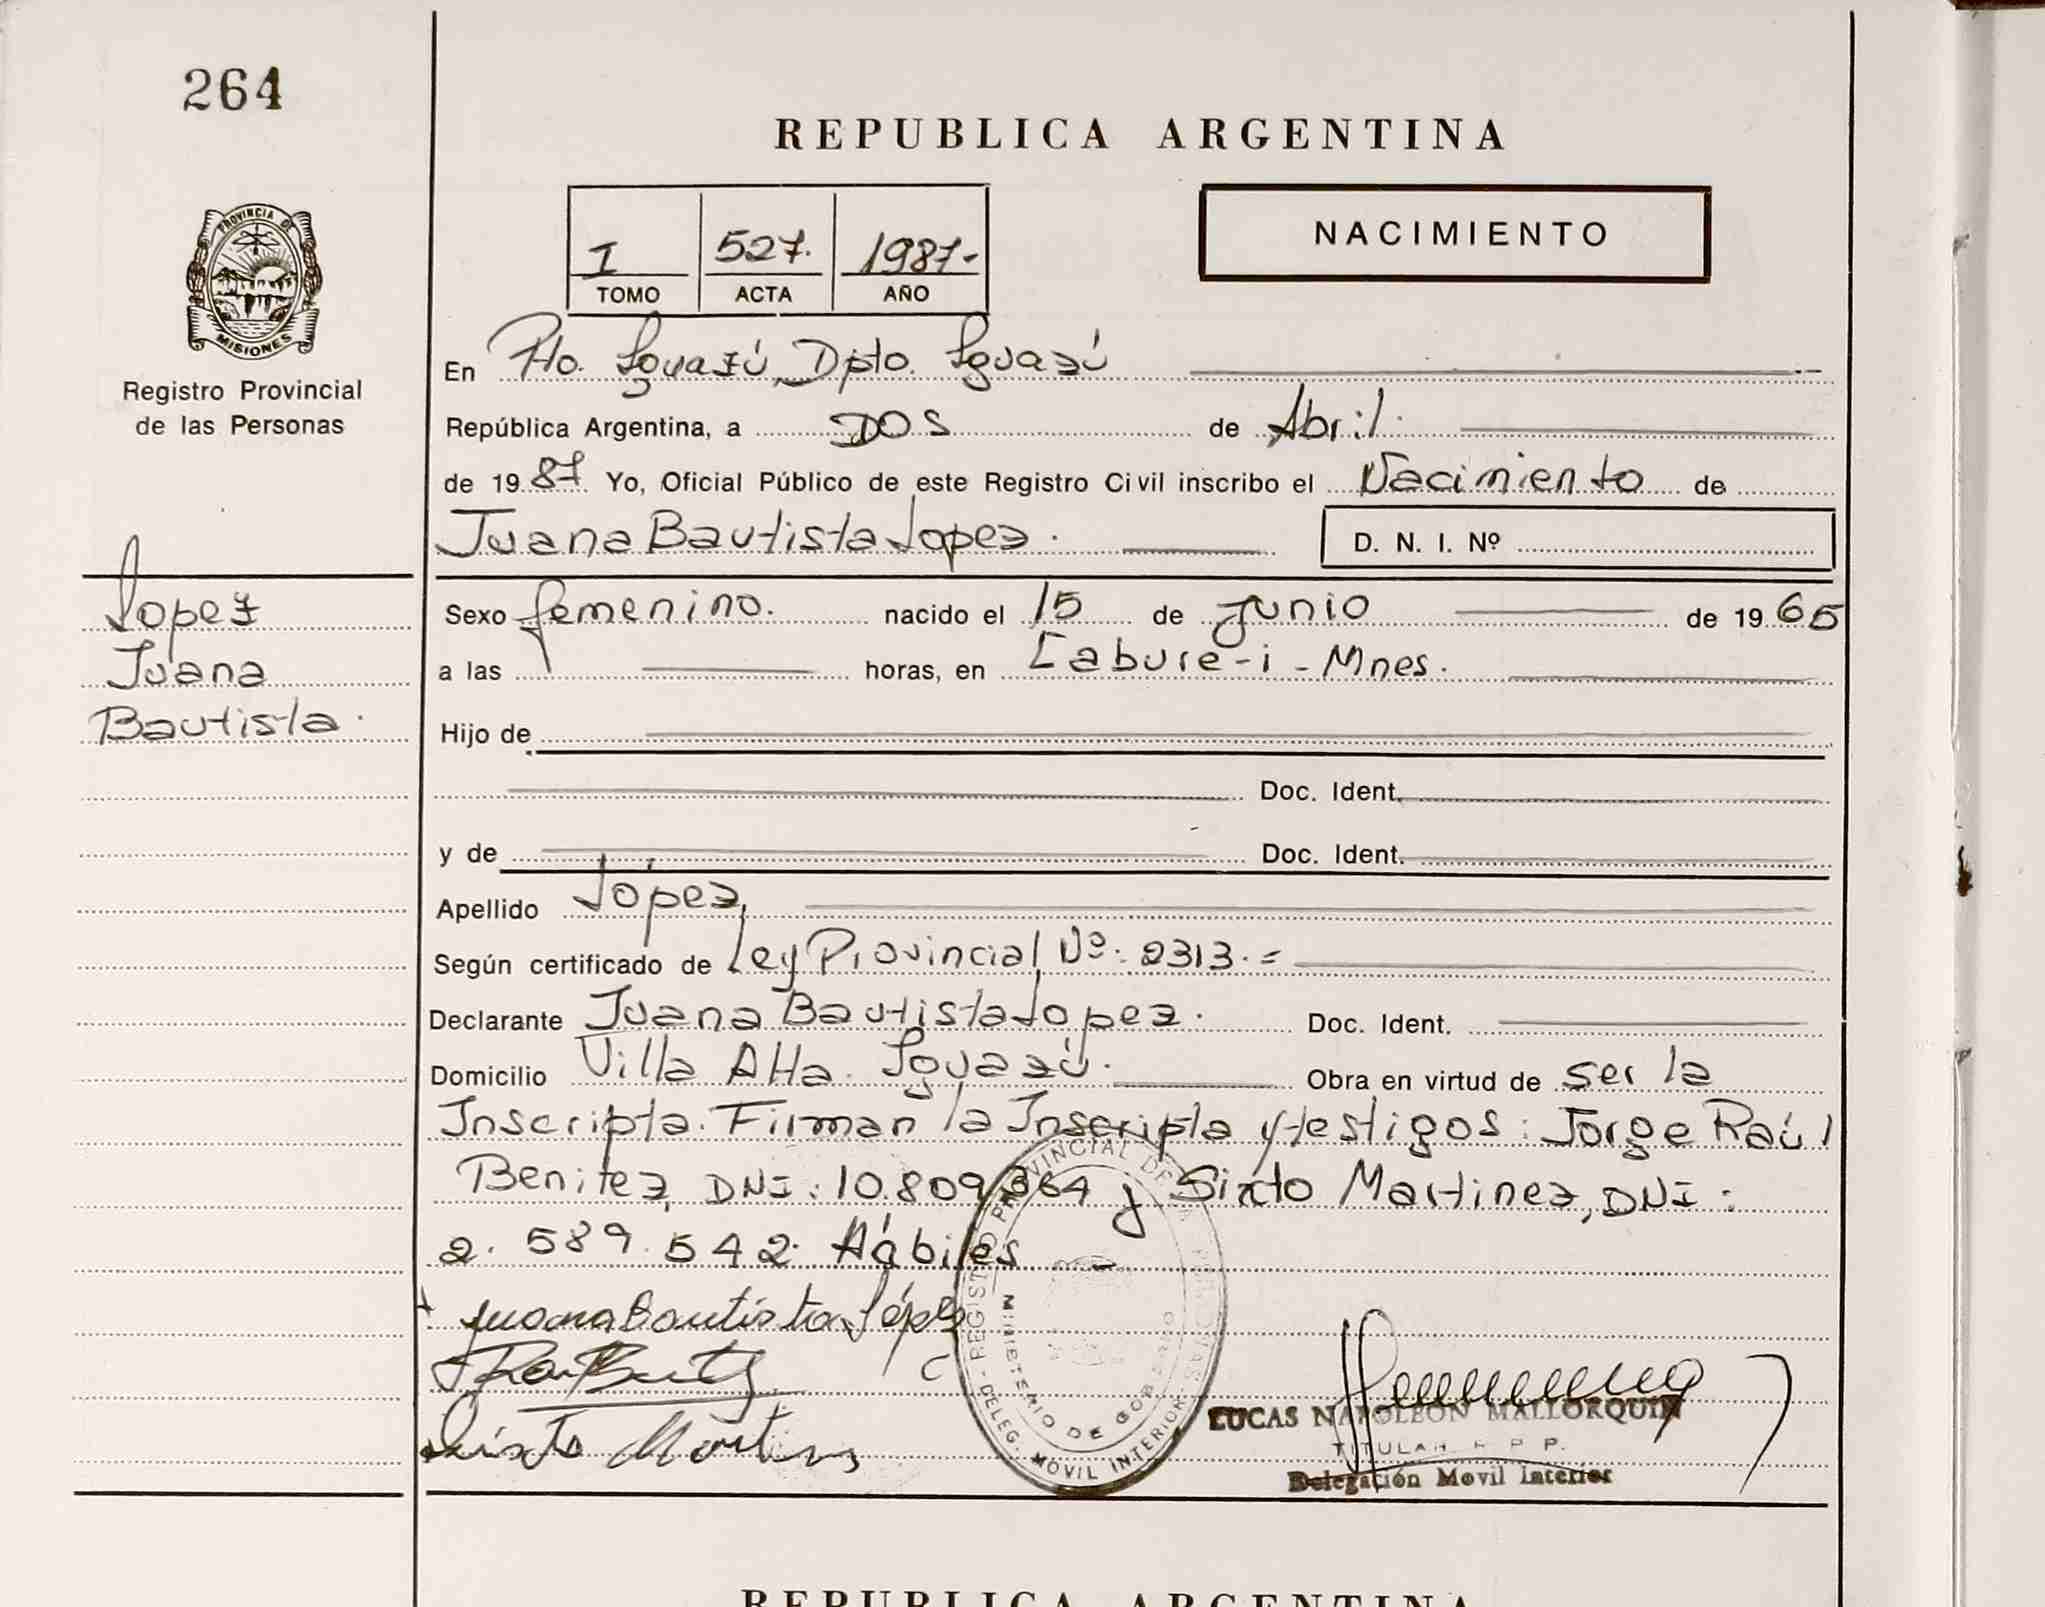 264
REPUBLICA ARGENTINA
NACIMIENTO
I 527. 1987-
TOMO ACTA AÑO
PROVINCIA DE
MISIONES
Registro Provincial
de las Personas
En Pto. Iguazú, Dpto. Iguazú
República Argentina, a DOS de Abril.
de 1987 Yo, Oficial Público de este Registro Civil inscribo el Nacimiento de
Juana Bautista Lopez.
D. N. I. Nº
Lopez
Juana
Bautista.
Sexo femenino. nacido el 15 de Junio de 1965
a las horas, en Cabure-i - Mnes.
Hijo de
Doc. Ident.
y de Doc. Ident.
Apellido López,
Según certificado de Ley Provincial Nº: 2313. =
Declarante Juana Bautista Lopez. Doc. Ident.
Domicilio Villa Alta. Iguazú. Obra en virtud de ser la
Inscripta. Firman la Inscripta y testigos: Jorge Raúl
Benitez, DNI: 10.809.364 y Sixto Martinez, DNI:
2.589.542. Hábiles
Juana Bautista López
Sixto Martines
REGISTRO PROVINCIAL DE LAS PERSONAS
MINISTERIO DE GOBIERNO
- DELEG. MOVIL INTERIOR -
LUCAS NAPOLEON MALLORQUIN
TITULAR R P P.
Delegación Movil Interior
REPUBLICA ARGENTINA